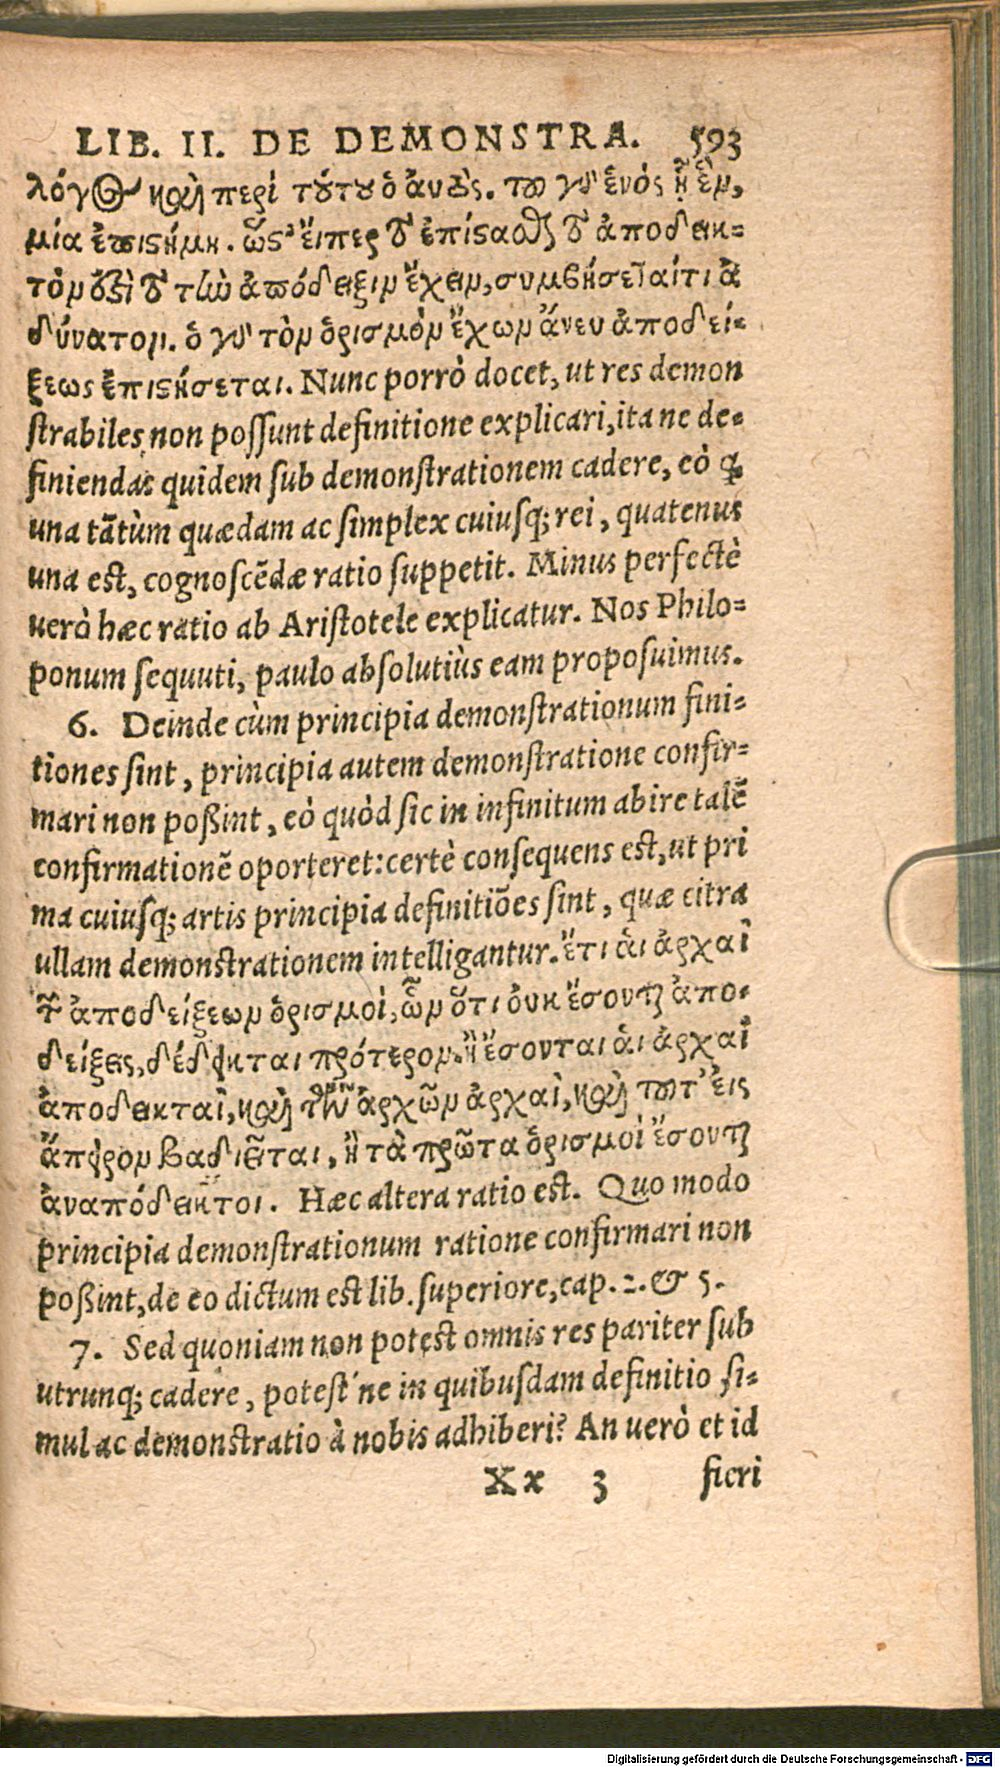 LIB. II. DE DEMONSTRA. 593
λόγος καὶ περὶ τούτου ὁ αὐτός. τοῦ γὰρ ἑνός ᾗ ἓν,
μία ἐπιστήμη. ὥστ' εἴπερ τὸ ἐπίστασθαι τὸ ἀποδεικ-
τὸν ἐστὶ τὸ τὴν ἀπόδειξιν ἔχειν, συμβήσεταί τι ἀ
δύνατον. ὁ γὰρ τὸν ὁρισμὸν ἔχων ἄνευ ἀποδεί-
ξεως ἐπιστήσεται. Nunc porrò docet, ut res demon
strabiles non possunt definitione explicari, ita ne de-
finiendas quidem sub demonstrationem cadere, eò qꝫ
una tātùm quædam ac simplex cuiusqꝫ rei, quatenus
una est, cognoscēdæ ratio suppetit. Minus perfectè
uerò hæc ratio ab Aristotele explicatur. Nos Philo-
ponum sequuti, paulo absolutiùs eam proposuimus.
6. Deinde cùm principia demonstrationum fini-
tiones sint, principia autem demonstratione confir-
mari non poßint, eò quòd sic in infinitum abire talē
confirmationē oporteret: certè consequens est, ut pri
ma cuiusqꝫ artis principia definitiōes sint, quæ citra
ullam demonstrationem intelligantur. ἔτι ἁι ἀρχαὶ
τῶν ἀποδείξεων ὁρισμοὶ, ὧν ὅτι ὀυκ ἔσονται ἀπο-
δείξεις, δέδεικται πρότερον. ἢ ἔσονται ἁι ἀρχαὶ
ἀποδεικταὶ, καὶ τῶν ἀρχῶν ἀρχαὶ, καὶ τοῦτ' ἐις
ἄπειρον βαδιεῖται, ἢ τὰ πρῶτα ὁρισμοὶ ἔσονται
ἀναπόδεικτοι. Hæc altera ratio est. Quo modo
principia demonstrationum ratione confirmari non
poßint, de eo dictum est lib. superiore, cap. 2. & 5.
7. Sed quoniam non potest omnis res pariter sub
utrunqꝫ cadere, potest'ne in quibusdam definitio si-
mul ac demonstratio à nobis adhiberi? An uerò et id
Xx 3 fieri
Digitalisierung gefördert durch die Deutsche Forschungsgemeinschaft - DFG